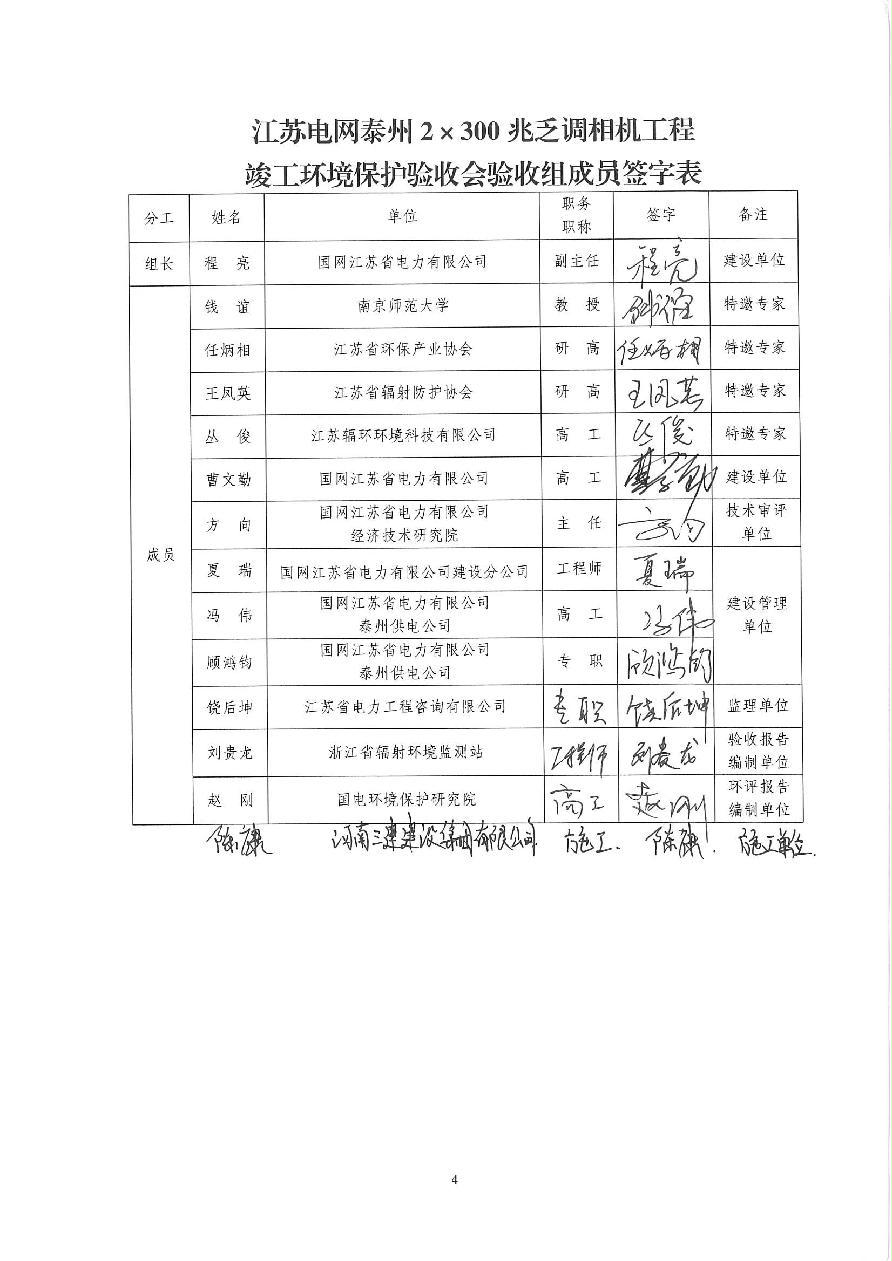 江苏电网泰州 2 × 300 兆乏调相机工程
竣工环境保护验收会验收组成员签字表
分工 姓名 单位 职务职称 签字 备注
组长 程亮 国网江苏省电力有限公司 副主任 程亮 建设单位
成员
钱谊 南京师范大学 教授 特邀专家
任炳相 江苏省环保产业协会 研高 任炳相 特邀专家
王凤英 江苏省辐射防护协会 研高 王凤英 特邀专家
丛俊 江苏辐环环境科技有限公司 高工 丛俊 特邀专家
曹文勤 国网江苏省电力有限公司 高工 曹文勤 建设单位
方向 国网江苏省电力有限公司 经济技术研究院 主任 方向 技术审评单位
夏瑞 国网江苏省电力有限公司建设分公司 工程师 夏瑞 建设管理单位
冯伟 国网江苏省电力有限公司 泰州供电公司 高工 冯伟
顾鸿钧 国网江苏省电力有限公司 泰州供电公司 专职 顾鸿钧
饶后坤 江苏省电力工程咨询有限公司 专职 饶后坤 监理单位
刘贵龙 浙江省辐射环境监测站 工程师 刘贵龙 验收报告编制单位
赵刚 国电环境保护研究院 高工 赵刚 环评报告编制单位
河南三建建设集团有限公司 施工. 施工单位.
4